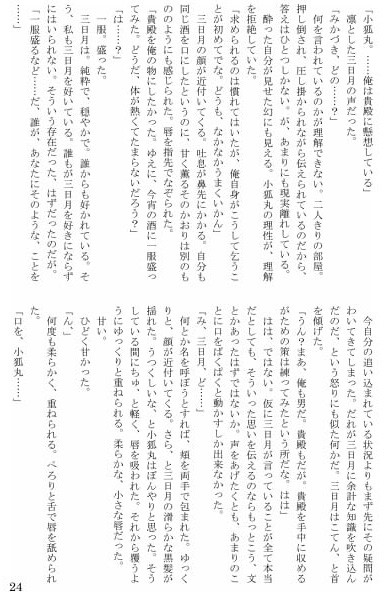 「小狐丸。……俺は貴殿に懸想している」
　凛とした三日月の声だった。
「みかづき、どの……？」
　何を言われているのかが理解できない。二人きりの部屋。
押し倒され、圧し掛かられながら伝えられているのだから、
答えはひとつしかない。が、あまりにも現実離れしている。
　酔った自分が見せた幻にも見える。小狐丸の理性が、理解
を拒絶していた。
「求められるのは慣れてはいたが、俺自身がこうして乞うこ
とが初めてでな。どうも、なかなかうまくいかん」
　三日月の顔が近付いてくる。吐息が鼻先にかかる。自分も
同じ酒を口にしたというのに、甘く薫るそのかおりは別のも
ののようにも感じられた。唇を指先でなぞられた。
「貴殿を俺の物にしたかった。ゆえに、今宵の酒に一服盛っ
てみた。どうだ、体が熱くてたまらないだろう？」
「は……？」
　一服。盛った。
　三日月は。純粋で、穏やかで。誰からも好かれている。そ
う、私も三日月を好いている。誰もが三日月を好きにならず
にはいられない。そういう存在だった。はずだったのだが。
「一服盛るなど……だ、誰が、あなたにそのような、ことを
……」
　今自分の追い込まれている状況よりもまず先にその疑問が
わいてきてしまった。だれが三日月に余計な知識を吹き込ん
だのだ、という怒りにも似た何かだ。三日月はこてん、と首
を傾げた。
「うん？まあ、俺も男だ。貴殿もだが。貴殿を手中に収める
がための策は練ってみたという所だな。はは」
　はは、ではない。仮に三日月が言っていることが全て本当
だとしても、そういった思いを伝えるのならもっとこう、文
とかあったはずではないか。声をあげたくとも、あまりのこ
とに口をぱくぱくと動かすしか出来なかった。
「み、三日月、ど……」
　何とか名を呼ぼうとすれば、頬を両手で包まれた。ゆっく
りと、顔が近付いてくる。さら、と三日月の滑らかな黒髪が
揺れた。うつくしいな、と小狐丸はぼんやりと思った。そう
している間にちゅ、と軽く、唇を吸われた。それから覆うよ
うにゆっくりと重ねられる。柔らかな、小さな唇だった。
　甘い。
　ひどく甘かった。
「ん」
　何度も柔らかく、重ねられる。ぺろりと舌で唇を舐められ
た。
「口を、小狐丸……」
24